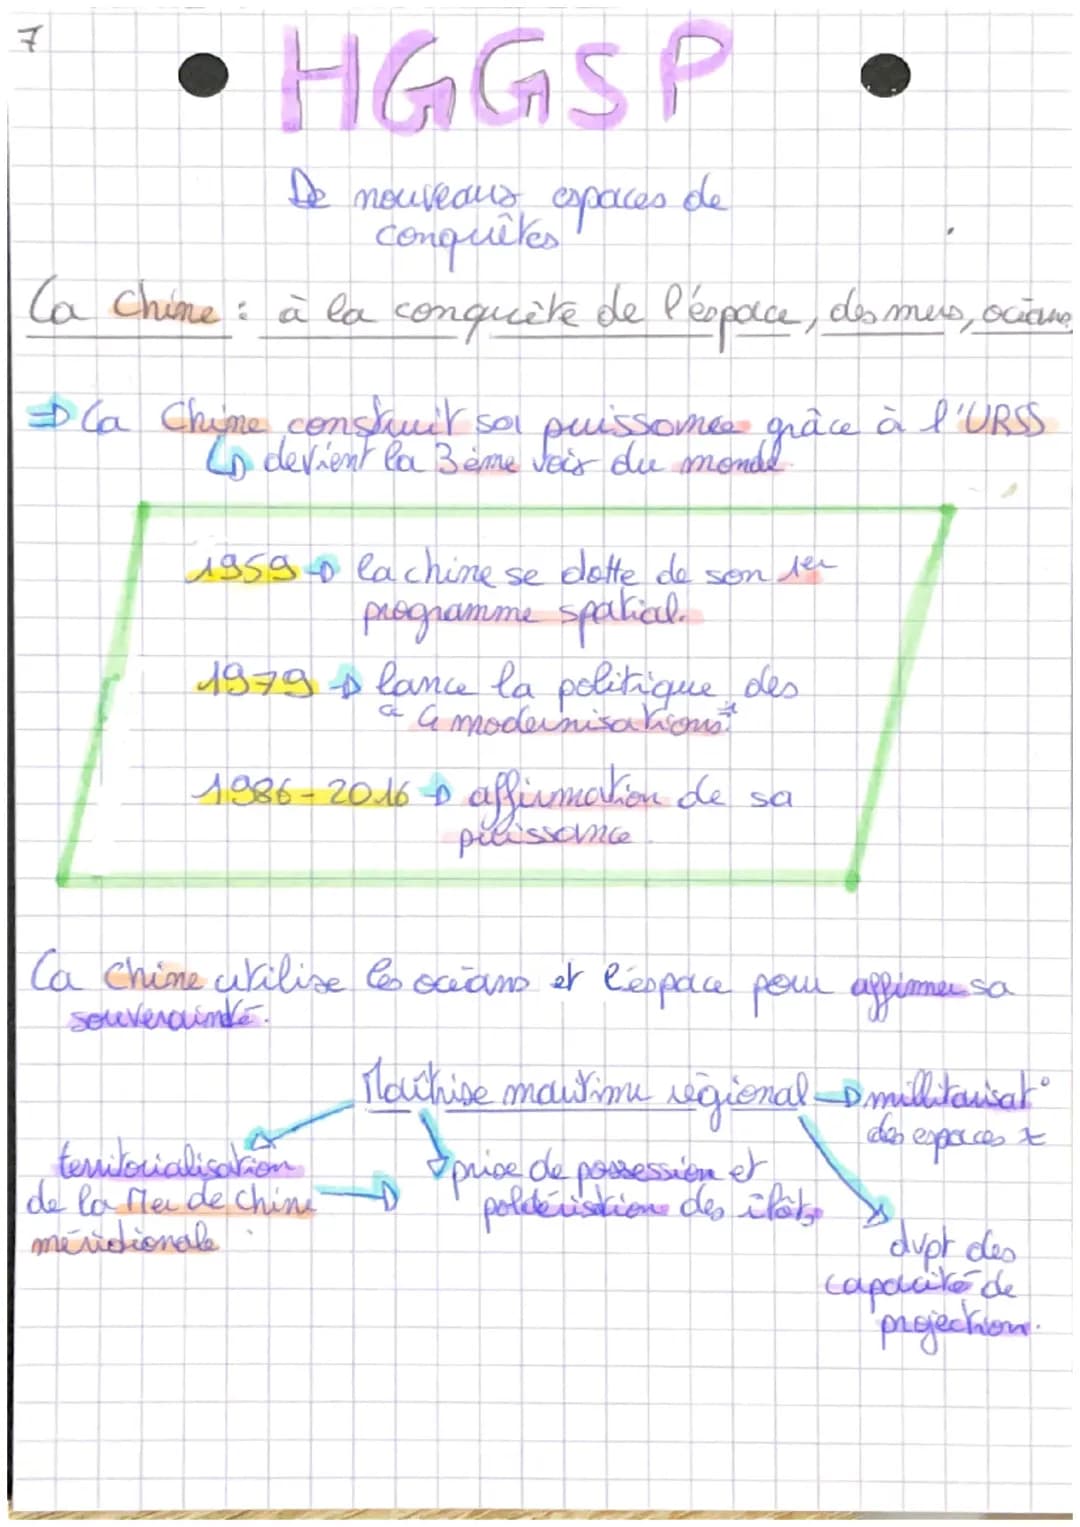 7
HGGSP
De nouveaux espaces de
conquêtes
La Chine : à la conquête de l'éspace, des mers, océans
⇒ La Chine construit sa puissance grâce à l'URSS
↳ devient la 3ème voix du monde.
1959 → la chine se dotte de son 1er
programme spatial.
1979 → lance la politique des
"4 modernisations"
1986-2016 → affirmation de sa
puissance
La Chine utilise les océans et l'éspace pour affirmer sa
souveraineté.
Maîtrise maritime régional → millitarisat°
des espaces x
territorialisation
de la Mer de Chine
méridionale
prise de possession et
poldérisation des îlots
dvpt des
capacité de
projection.